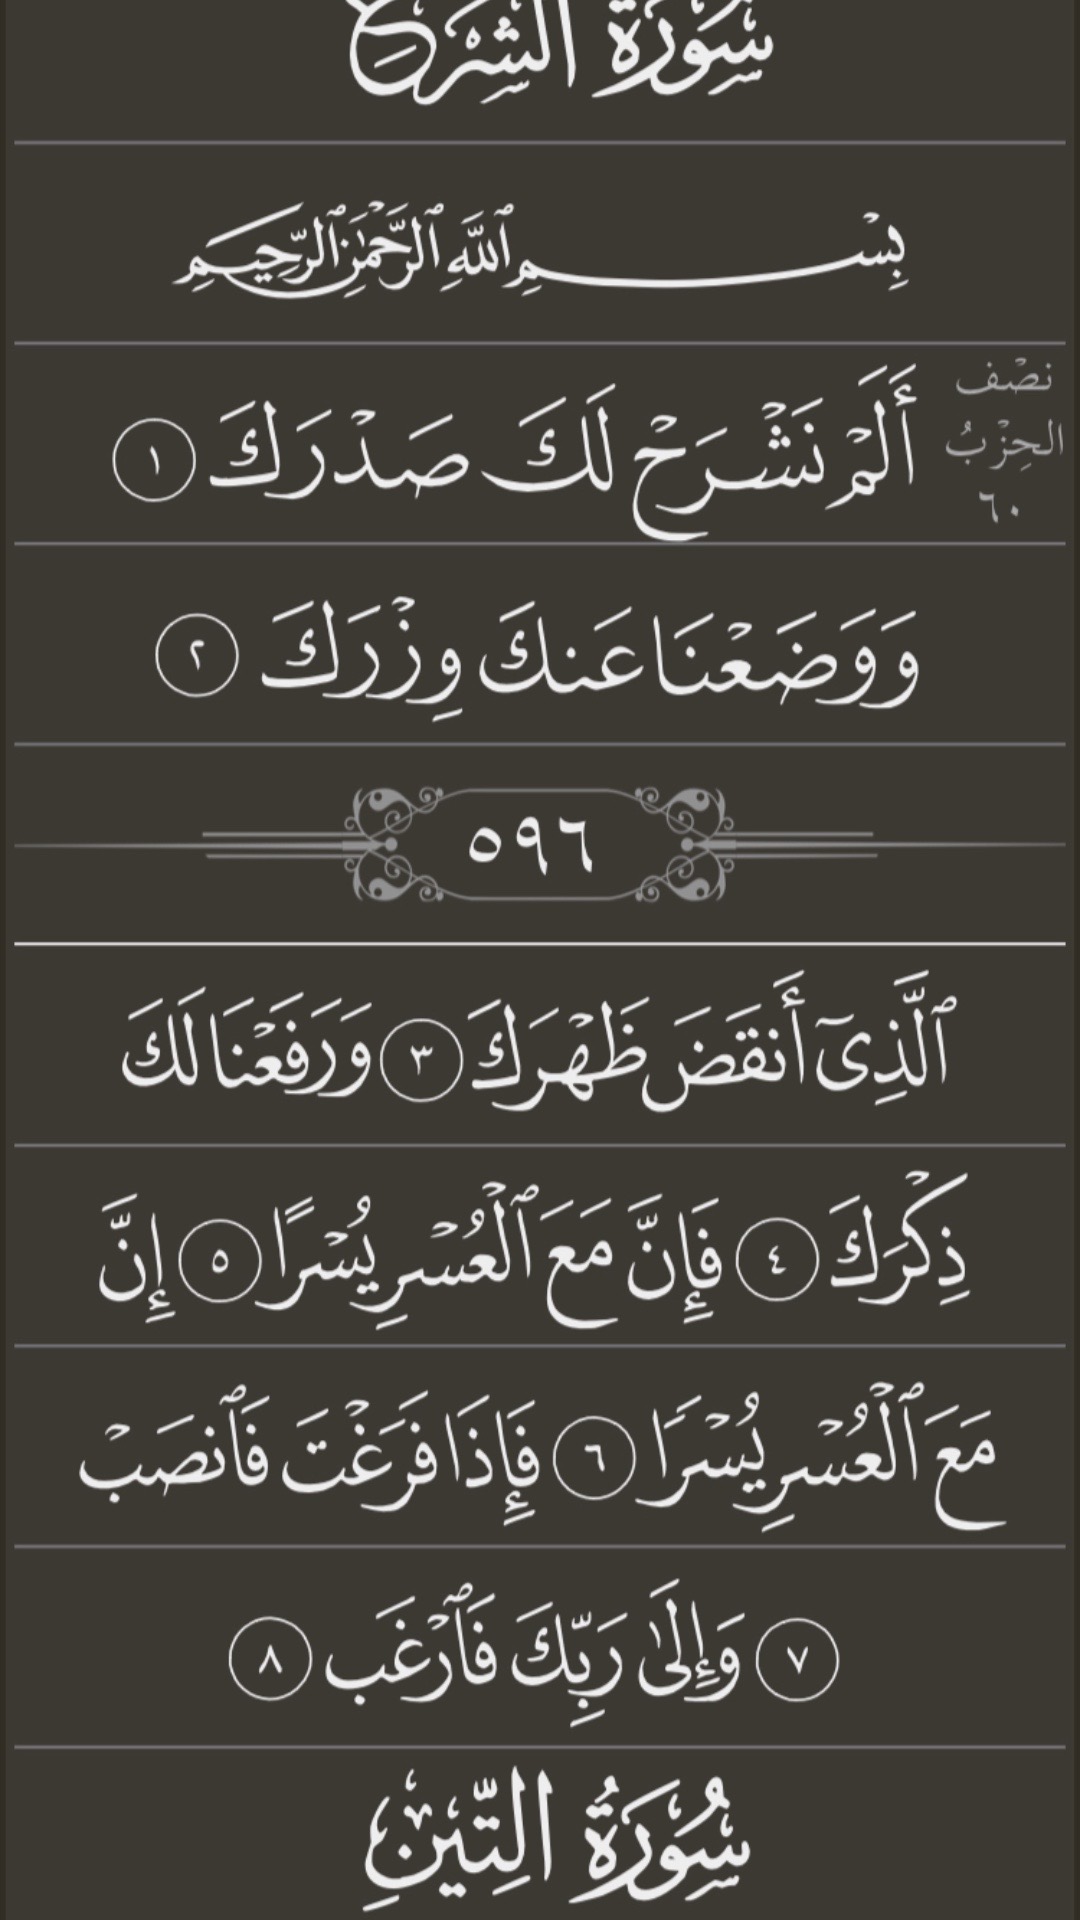 سُورَةُ الشَّرْحِ
بِسْمِ ٱللَّهِ ٱلرَّحْمَٰنِ ٱلرَّحِيمِ
نصْف
الحِزْبُ
٦٠
أَلَمْ نَشْرَحْ لَكَ صَدْرَكَ ١
وَوَضَعْنَا عَنكَ وِزْرَكَ ٢
٥٩٦
ٱلَّذِىٓ أَنقَضَ ظَهْرَكَ ٣ وَرَفَعْنَا لَكَ
ذِكْرَكَ ٤ فَإِنَّ مَعَ ٱلْعُسْرِ يُسْرًا ٥ إِنَّ
مَعَ ٱلْعُسْرِ يُسْرًا ٦ فَإِذَا فَرَغْتَ فَٱنصَبْ
٧ وَإِلَىٰ رَبِّكَ فَٱرْغَب ٨
سُورَةُ التِّينِ